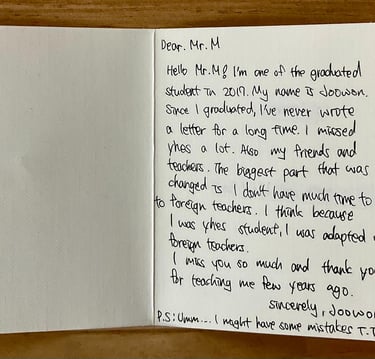 Dear. Mr. M
Hello Mr.M! I'm one of the graduated
student in 2017. My name is Joowon.
Since I graduated, I've never wrote
a letter for a long time. I missed
yhes a lot. Also my friends and
teachers. The biggest part that was
changed is I don't have much time to
to foreign teachers. I think because
I was yhes student, I was adapted
foreign teachers.
I miss you so much and thank you
for teaching me few years ago.
sincerely, Joowon
P.S: Umm... I might have some mistakes T.T